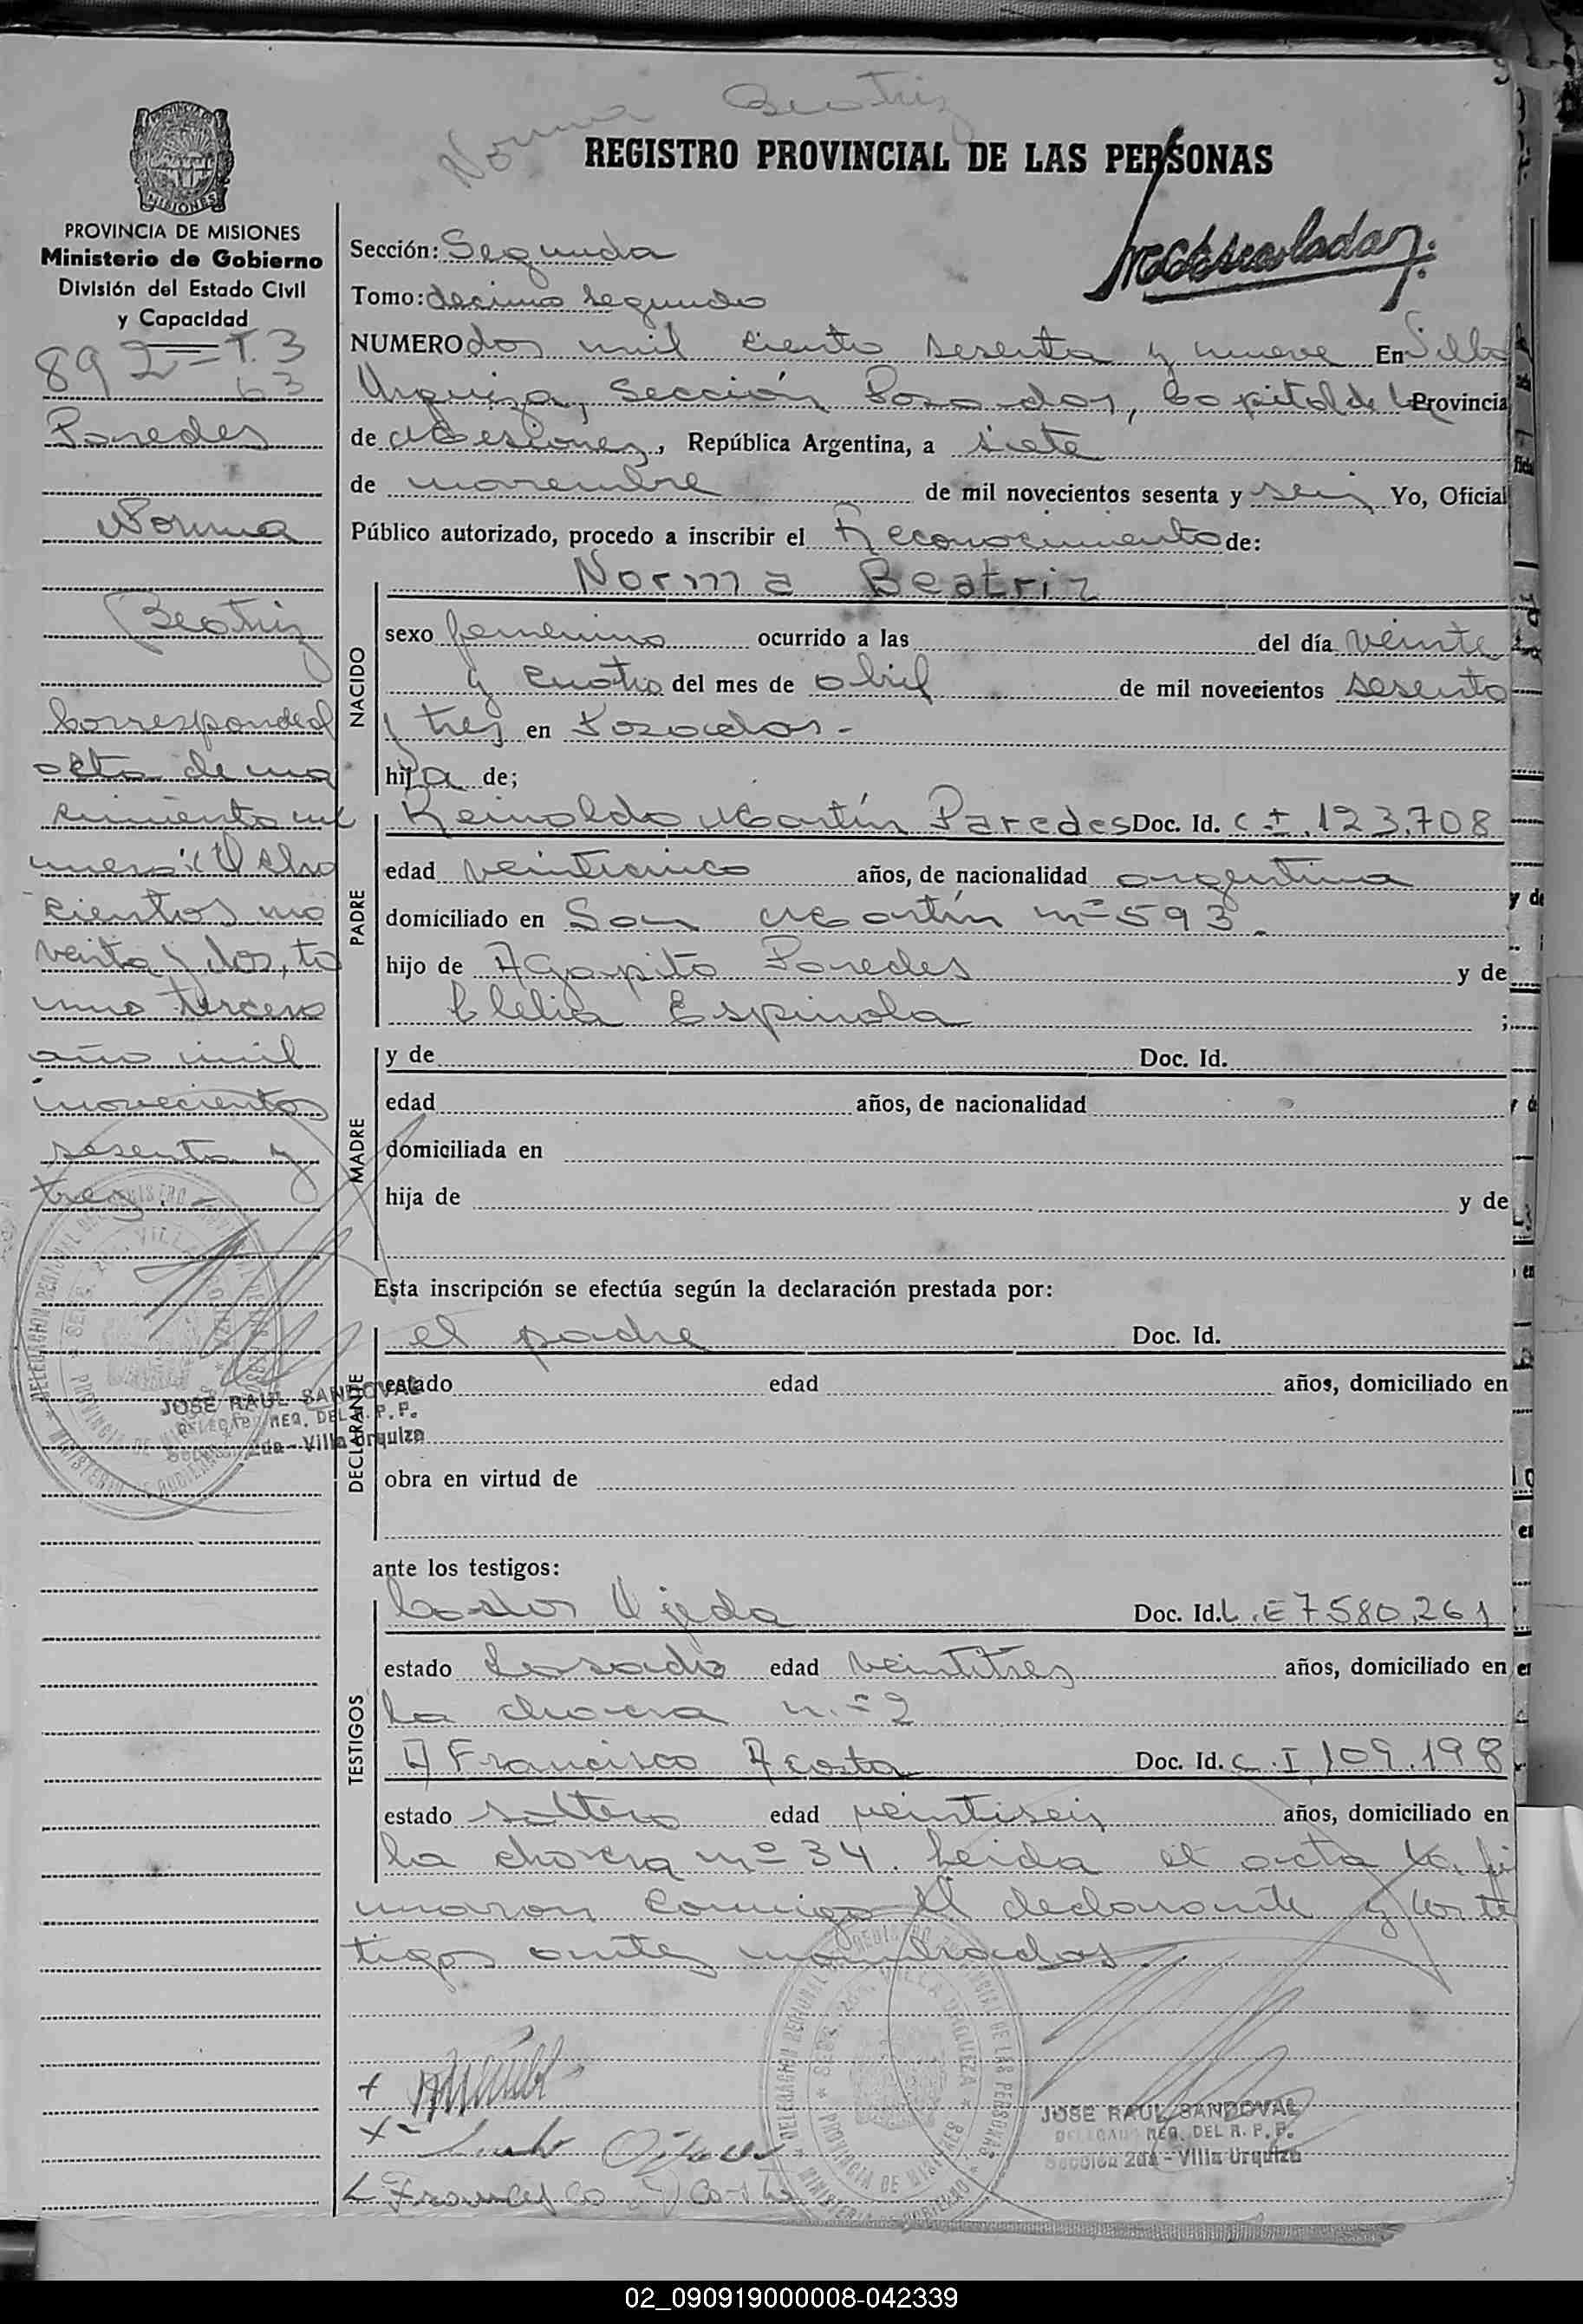 Norma Beatriz
REGISTRO PROVINCIAL DE LAS PERSONAS
PROVINCIA DE MISIONES
Ministerio de Gobierno
División del Estado Civil
y Capacidad
892 = T.3
63
Paredes
Norma
Beatriz
Corresponde al
acta de na
cimiento nú
mero: Ocho
cientos no
venta y dos, to
mo tercero
año mil
novecientos
sesenta y
tres.-
JOSE RAUL SANDOVAL
DELEGADO REG. DEL R. P. P.
Sección 2da - Villa Urquiza
Sección: Segunda
Tomo: decimo segundo
NUMERO dos mil ciento sesenta y nueve En Villa
Urquiza, Sección Posadas, Capital de la Provincia
de Misiones, República Argentina, a siete
de noviembre de mil novecientos sesenta y seis Yo, Oficial
Público autorizado, procedo a inscribir el Reconocimiento de:
NACIDO
Norma Beatriz
sexo femenino ocurrido a las del día veinte
y cuatro del mes de abril de mil novecientos sesenta
y tres en Posadas.-
hija de;
PADRE
Reinaldo Martín Paredes Doc. Id. C.I. 123.708
edad veinticinco años, de nacionalidad argentina
domiciliado en San Martín nº 593.
hijo de Agapito Paredes y de
Clelia Espinola ;
MADRE
y de Doc. Id.
edad años, de nacionalidad
domiciliada en
hija de y de
Esta inscripción se efectúa según la declaración prestada por:
DECLARANTE
el padre Doc. Id.
estado edad años, domiciliado en
obra en virtud de
ante los testigos:
TESTIGOS
Ojeda Doc. Id. L.E 7.580.261
estado casado edad veintitres años, domiciliado en
la chacra n.º 2
Francisco Acosta Doc. Id. C.I 109.198
estado soltero edad veintiseis años, domiciliado en
la chacra nº 34. Leida el acta la fir
maron conmigo el declarante y los tes
tigos antes nombrados.
DELEGACION REGIONAL DEL REGISTRO PROVINCIAL DE LAS PERSONAS
SECC. 2da. VILLA URQUIZA
PROVINCIA DE MISIONES
MINISTERIO DE GOBIERNO
JOSE RAUL SANDOVAL
DELEGADO REG. DEL R. P. P.
Sección 2da - Villa Urquiza
Francisco Acosta
02_090919000008-042339